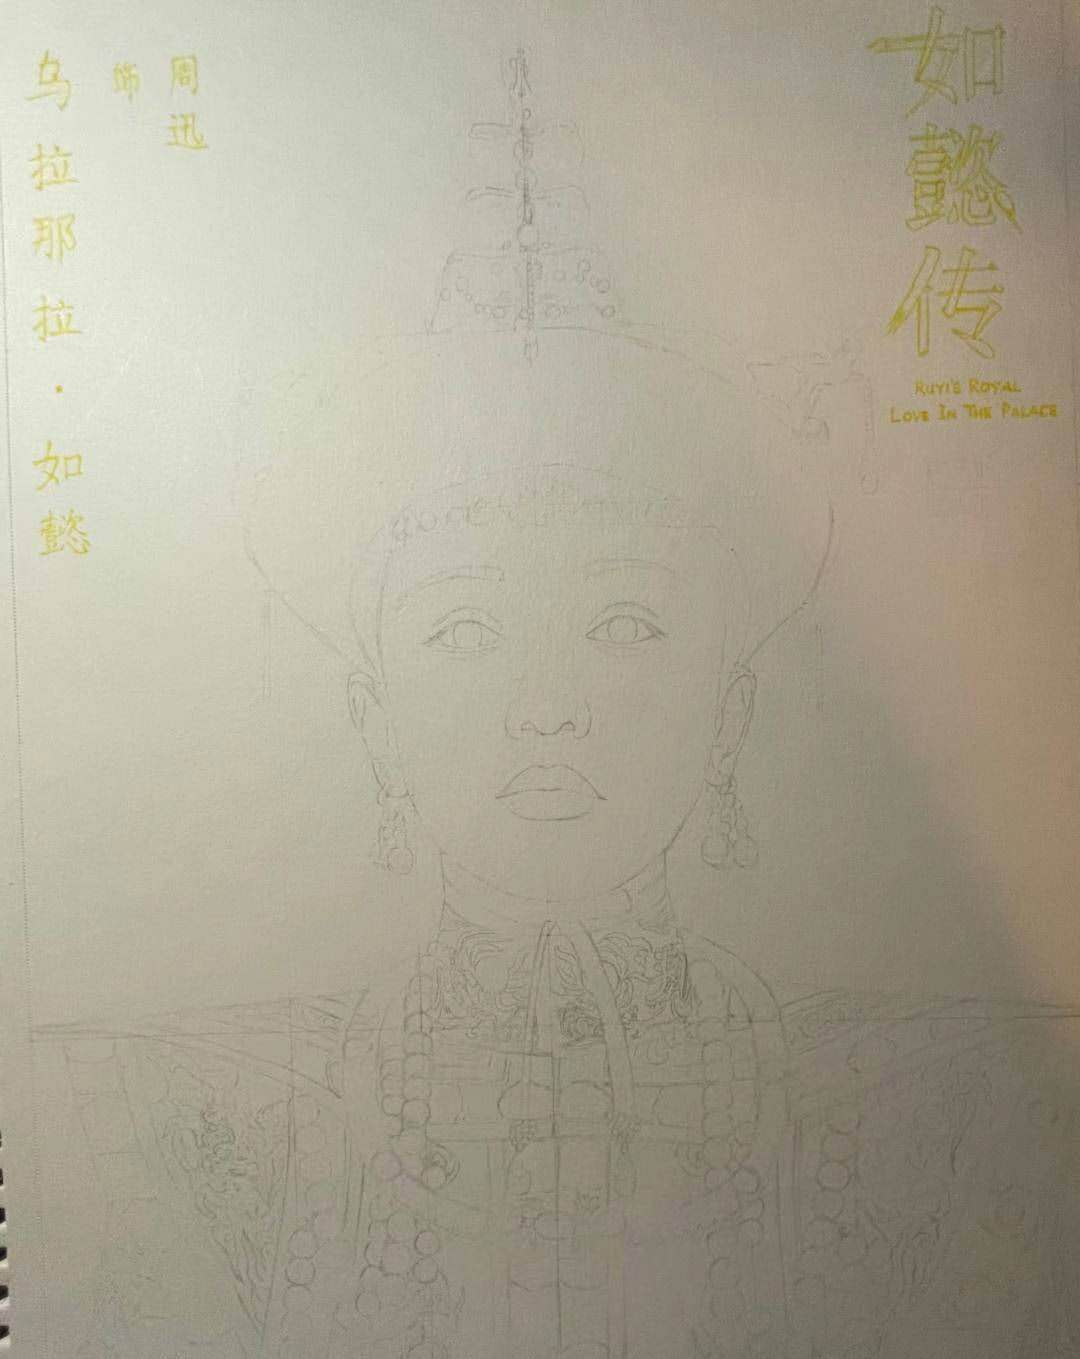 如懿传
RUYI'S ROYAL
LOVE IN THE PALACE
周迅
饰
乌拉那拉·如懿